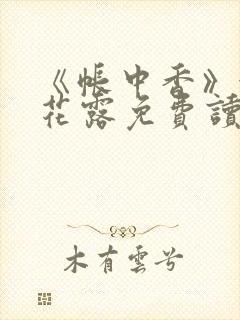 《帳中香》
花露免費讀
木有雲兮